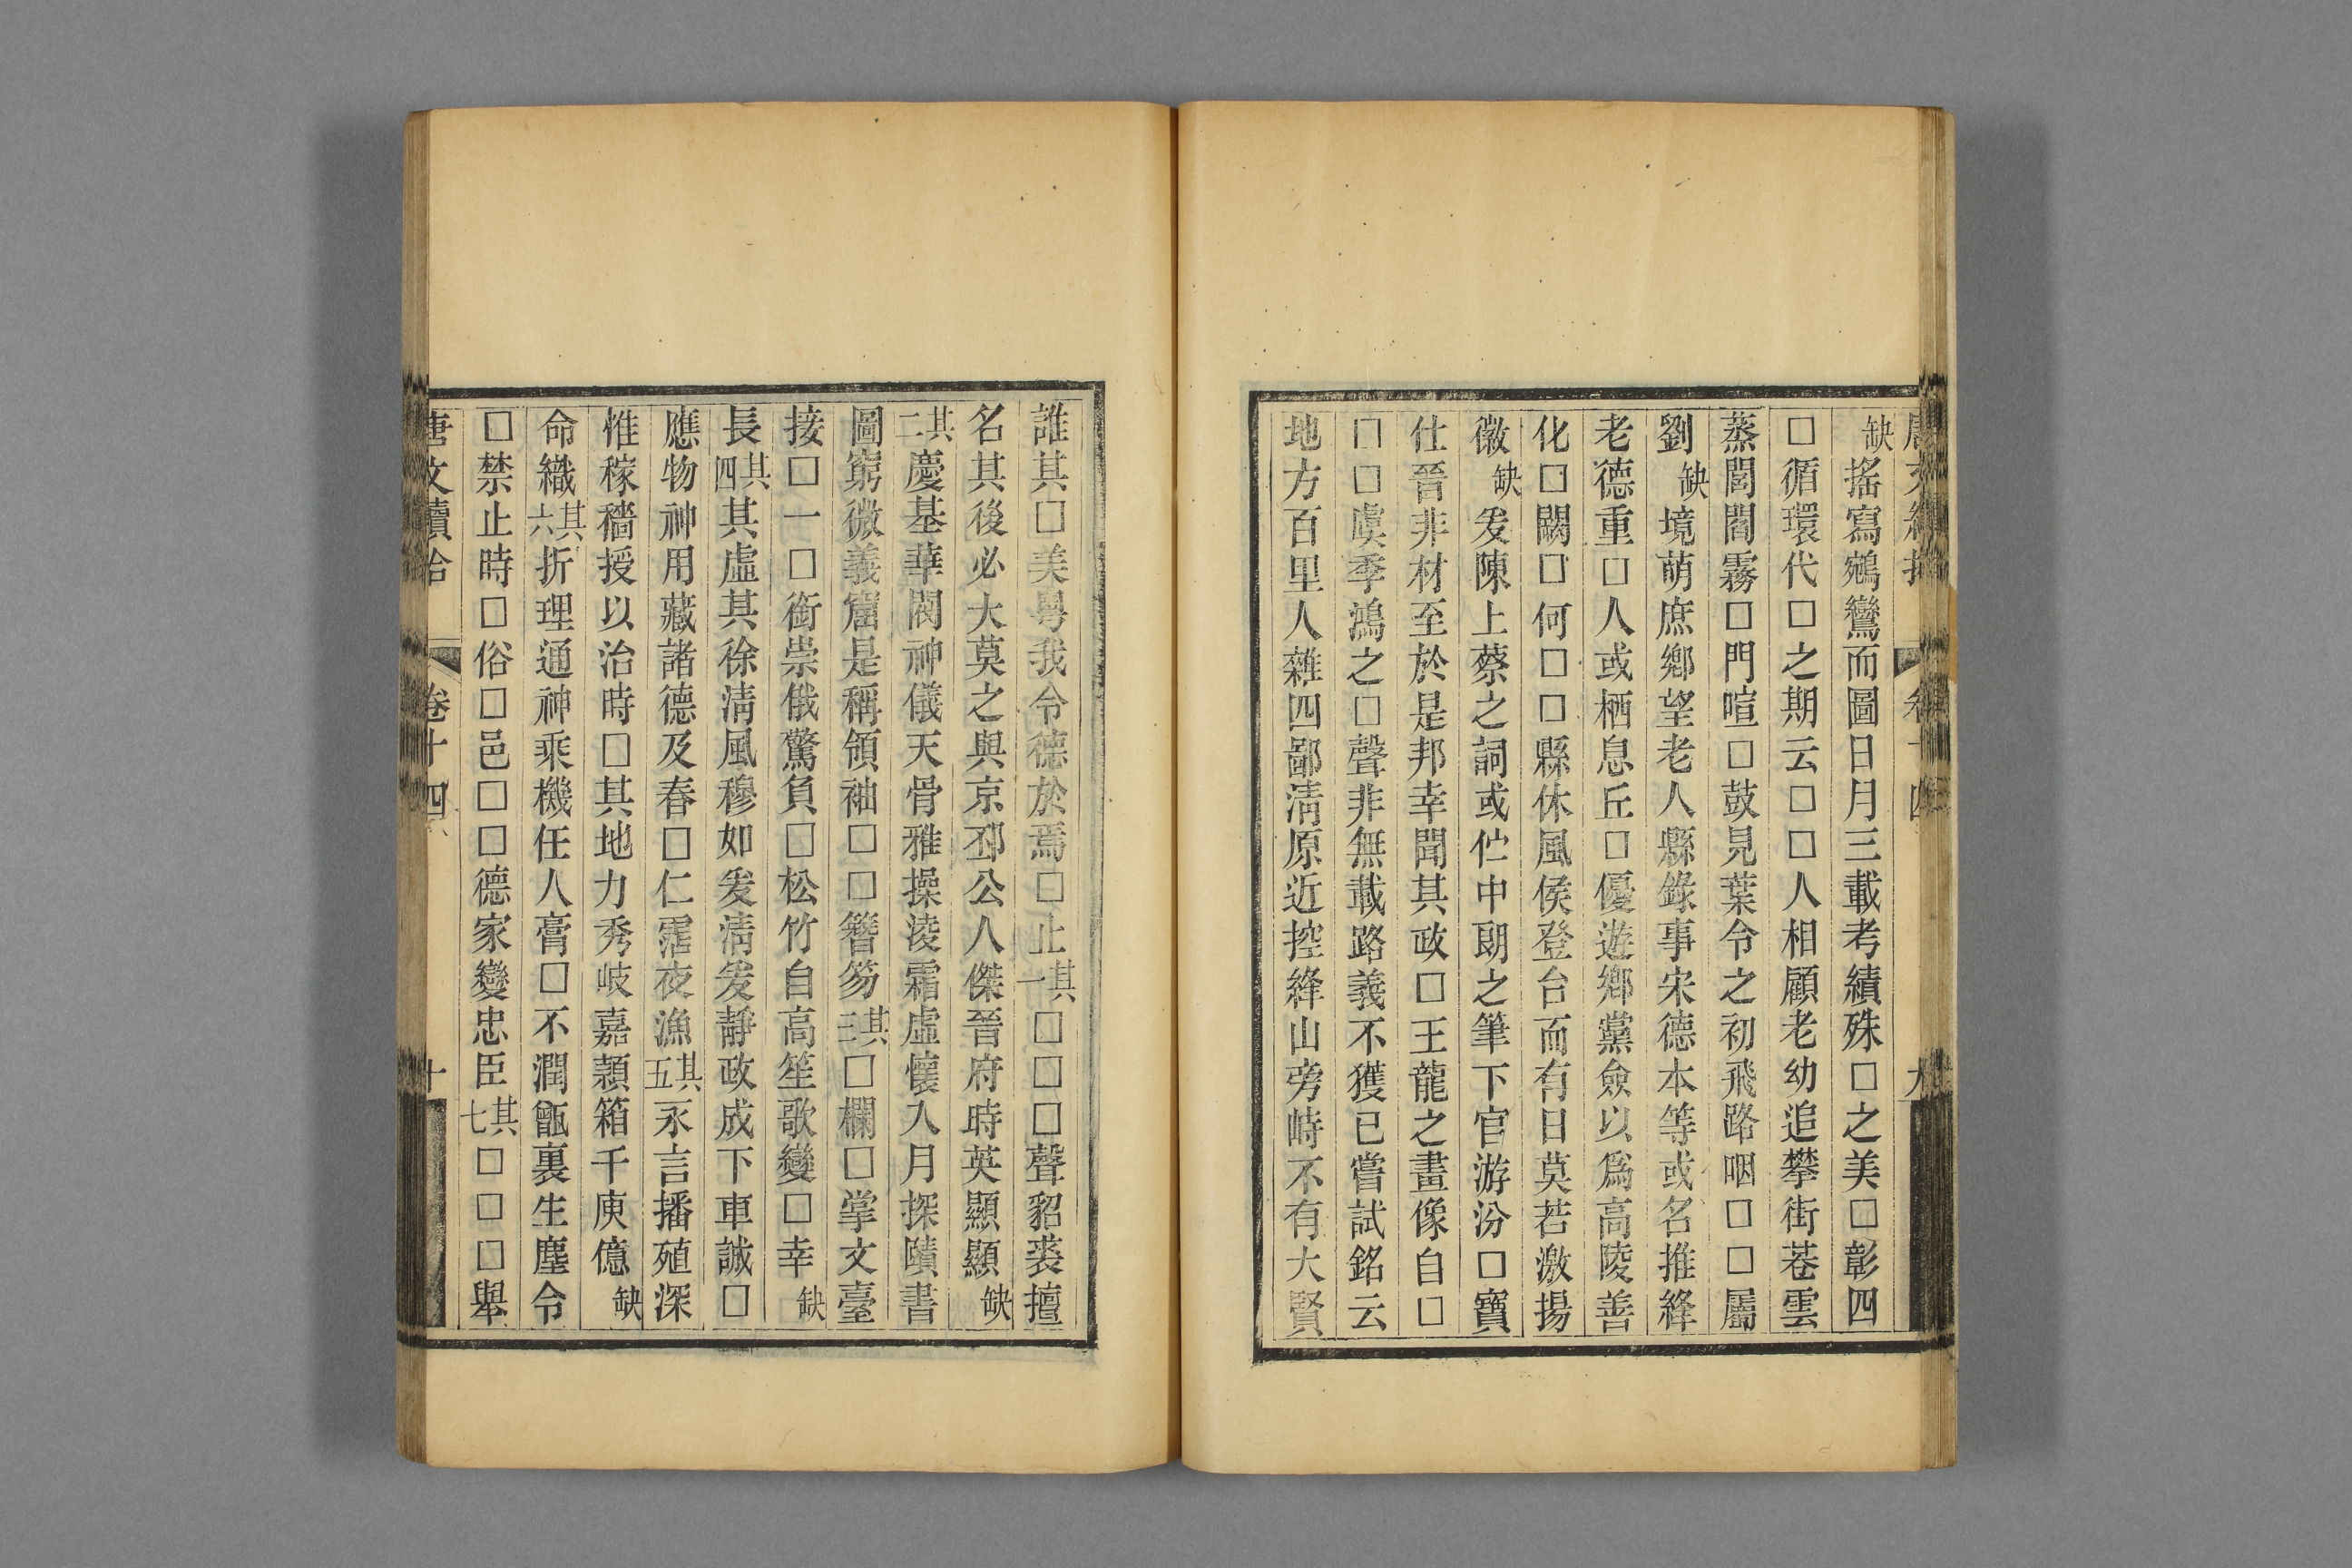 唐文續拾 卷十四 九
缺搖寫鵷鸞而圖日月三載考績殊□之美□彰四
□循環代□之期云□□人相顧老幼追攀街巷雲
蒸閭閻霧□門喧□鼓見葉令之初飛路咽□□屬
劉缺境萌庶鄉望老人縣錄事宋德本等或名推絳
老德重□人或栖息丘□優遊鄉黨僉以爲高陵善
化□闕□何□□縣休風侯登台而有日莫若激揚
徽缺爰陳上蔡之詞或伫中郎之筆下官游汾□寶
仕晉非材至於是邦幸聞其政□王龍之畫像自□
□□虞季鴻之□聲非無載路義不獲已嘗試銘云
地方百里人雜四鄙清原近控絳山旁峙不有大賢
誰其□美粵我令德於焉□止其一□□□聲貂裘擅
名其後必大莫之與京邳公人傑晉府時英顯顯缺
其二慶基華閥神儀天骨雅操淩霜虛懷入月探賾書
圖窮微義窟是稱領袖□□簪笏其三□欄□掌文臺
接□一□銜崇俄驚負□松竹自高笙歌變□幸缺
長其四其虛其徐清風穆如爰清爰靜政成下車誠□
應物神用藏諸德及春□仁霑夜漁其五永言播殖深
惟稼穡授以治時□其地力秀岐嘉穎箱千庾億缺
命織其六折理通神乘機任人膏□不潤甑裏生塵令
□禁止時□俗□邑□□德家變忠臣其七□□□舉
唐文續拾 卷十四 十